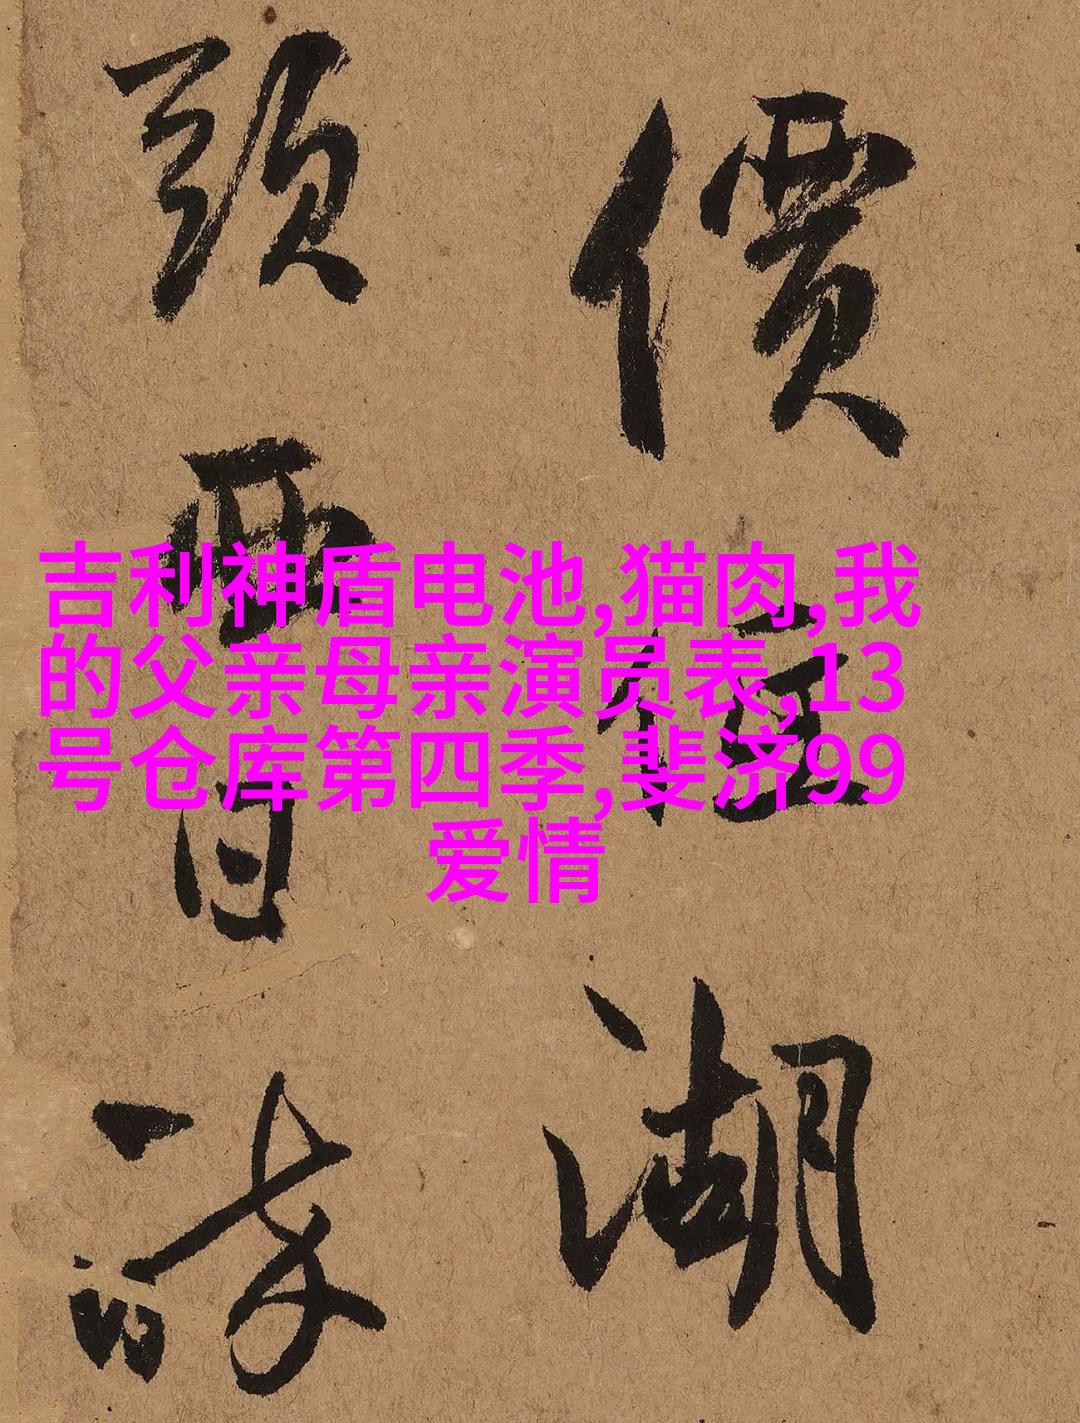 吉利神盾电池,猫肉,我
的父亲母亲演员表,13
号仓库第四季,斐济99
爱情
價
湖
頭
西